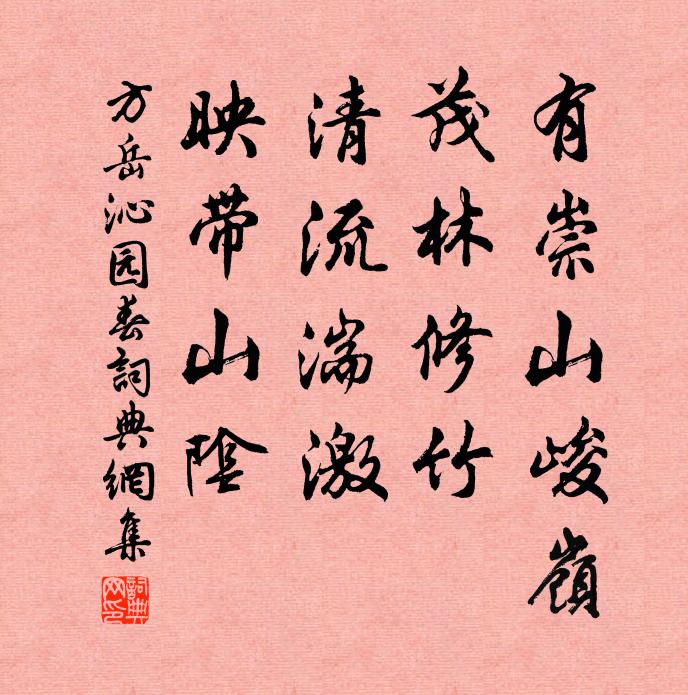 有崇山峻嶺
茂林修竹
清流湍激
映带山陰
方岳沁园春詞典網集
詞典网印